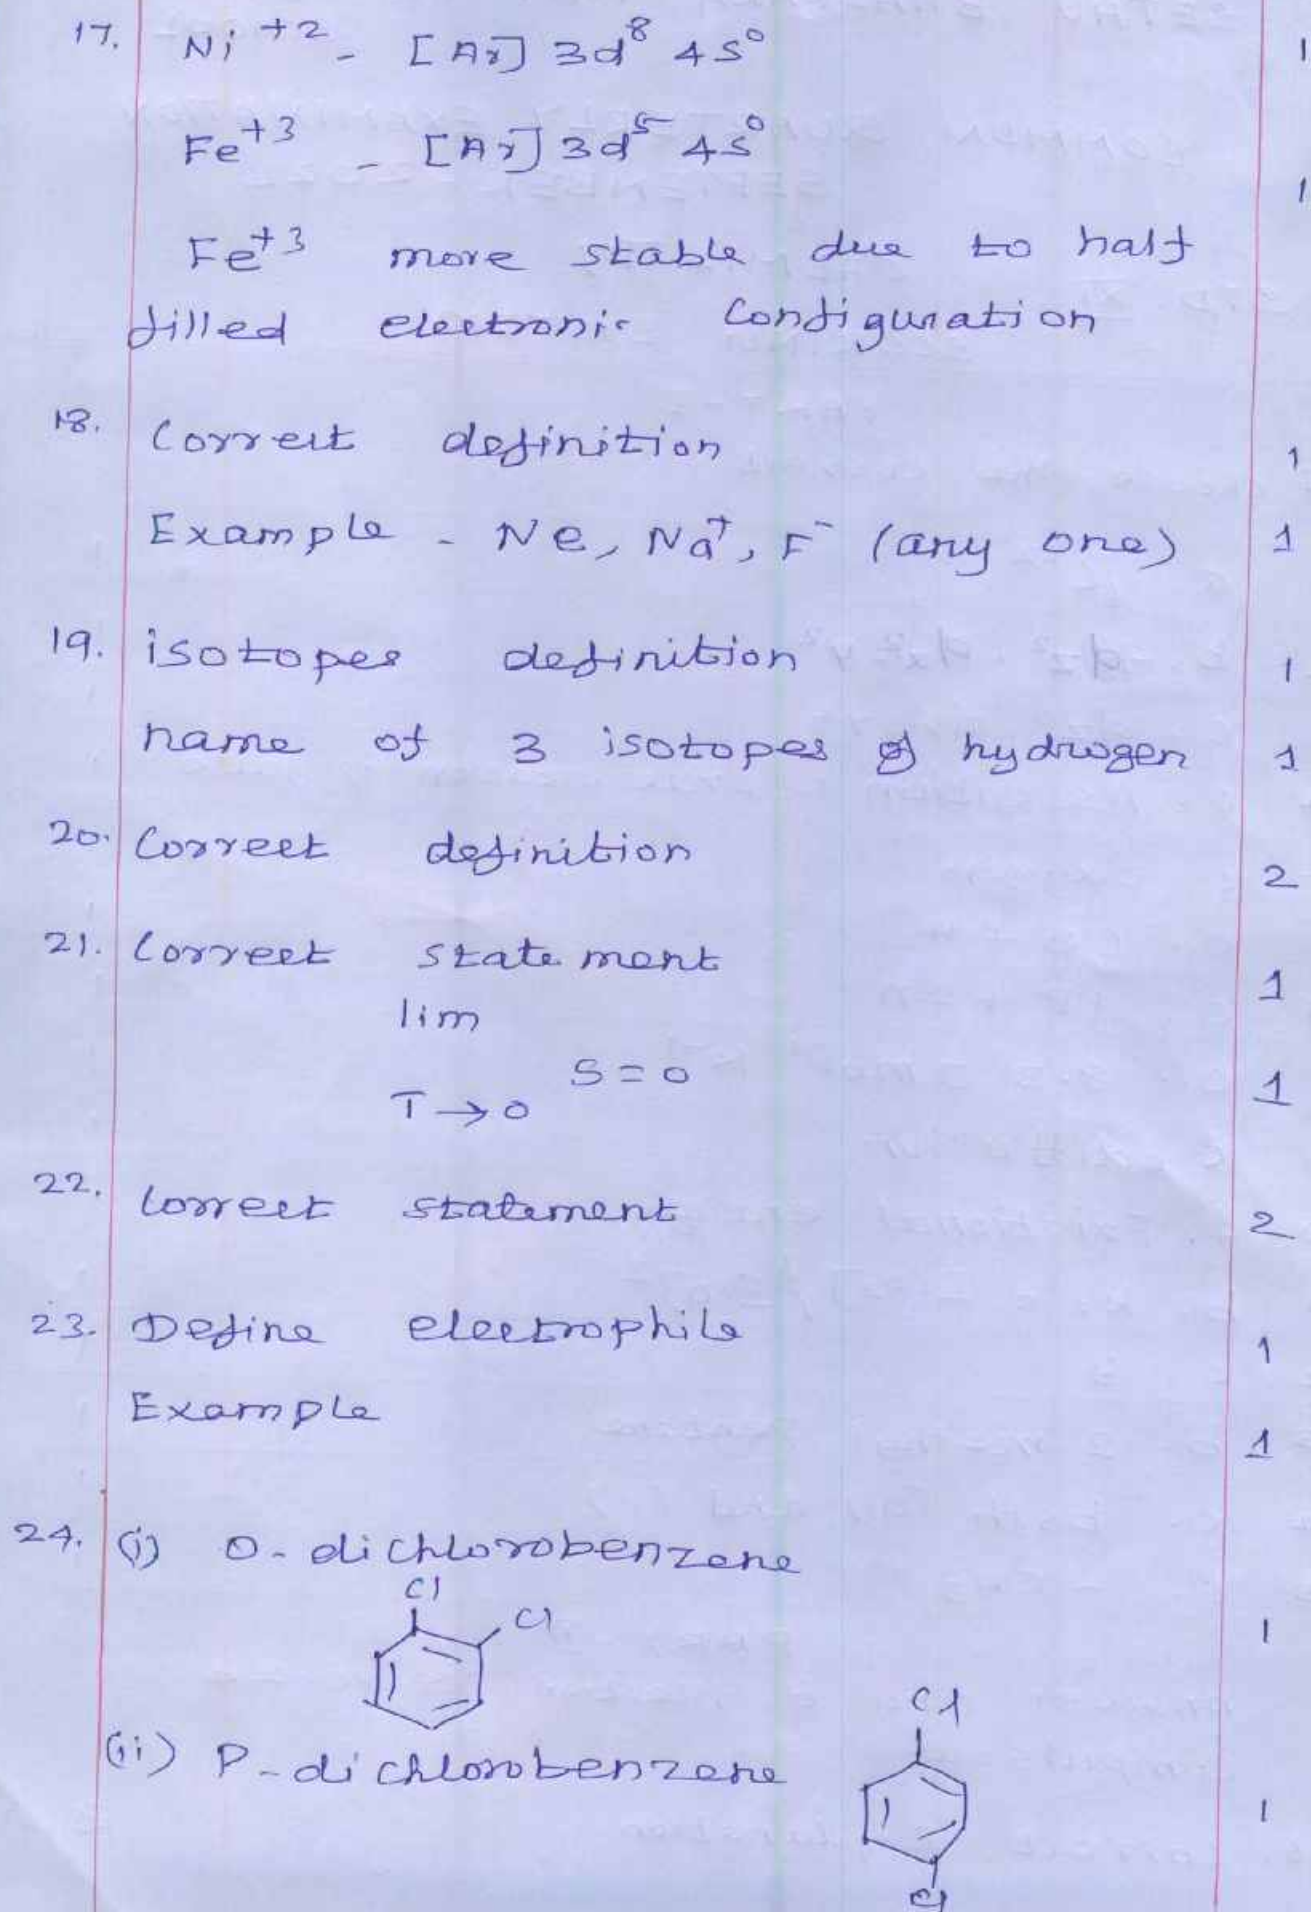 17. Ni +2 - [Ar] 3d8 4s0 1
Fe+3 - [Ar] 3d5 4s0 1
Fe+3 more stable due to half
filled electronic configuration
18. Correct definition 1
Example - Ne, Na+, F- (any one) 1
19. isotopes definition 1
name of 3 isotopes of hydrogen 1
20. Correct definition 2
21. Correct statement 1
lim
S = 0
T → 0 1
22. Correct statement 2
23. Define electrophile 1
Example 1
24. (i) O-dichlorobenzene
Cl
Cl 1
Cl
(ii) P-dichlorobenzene
1
Cl